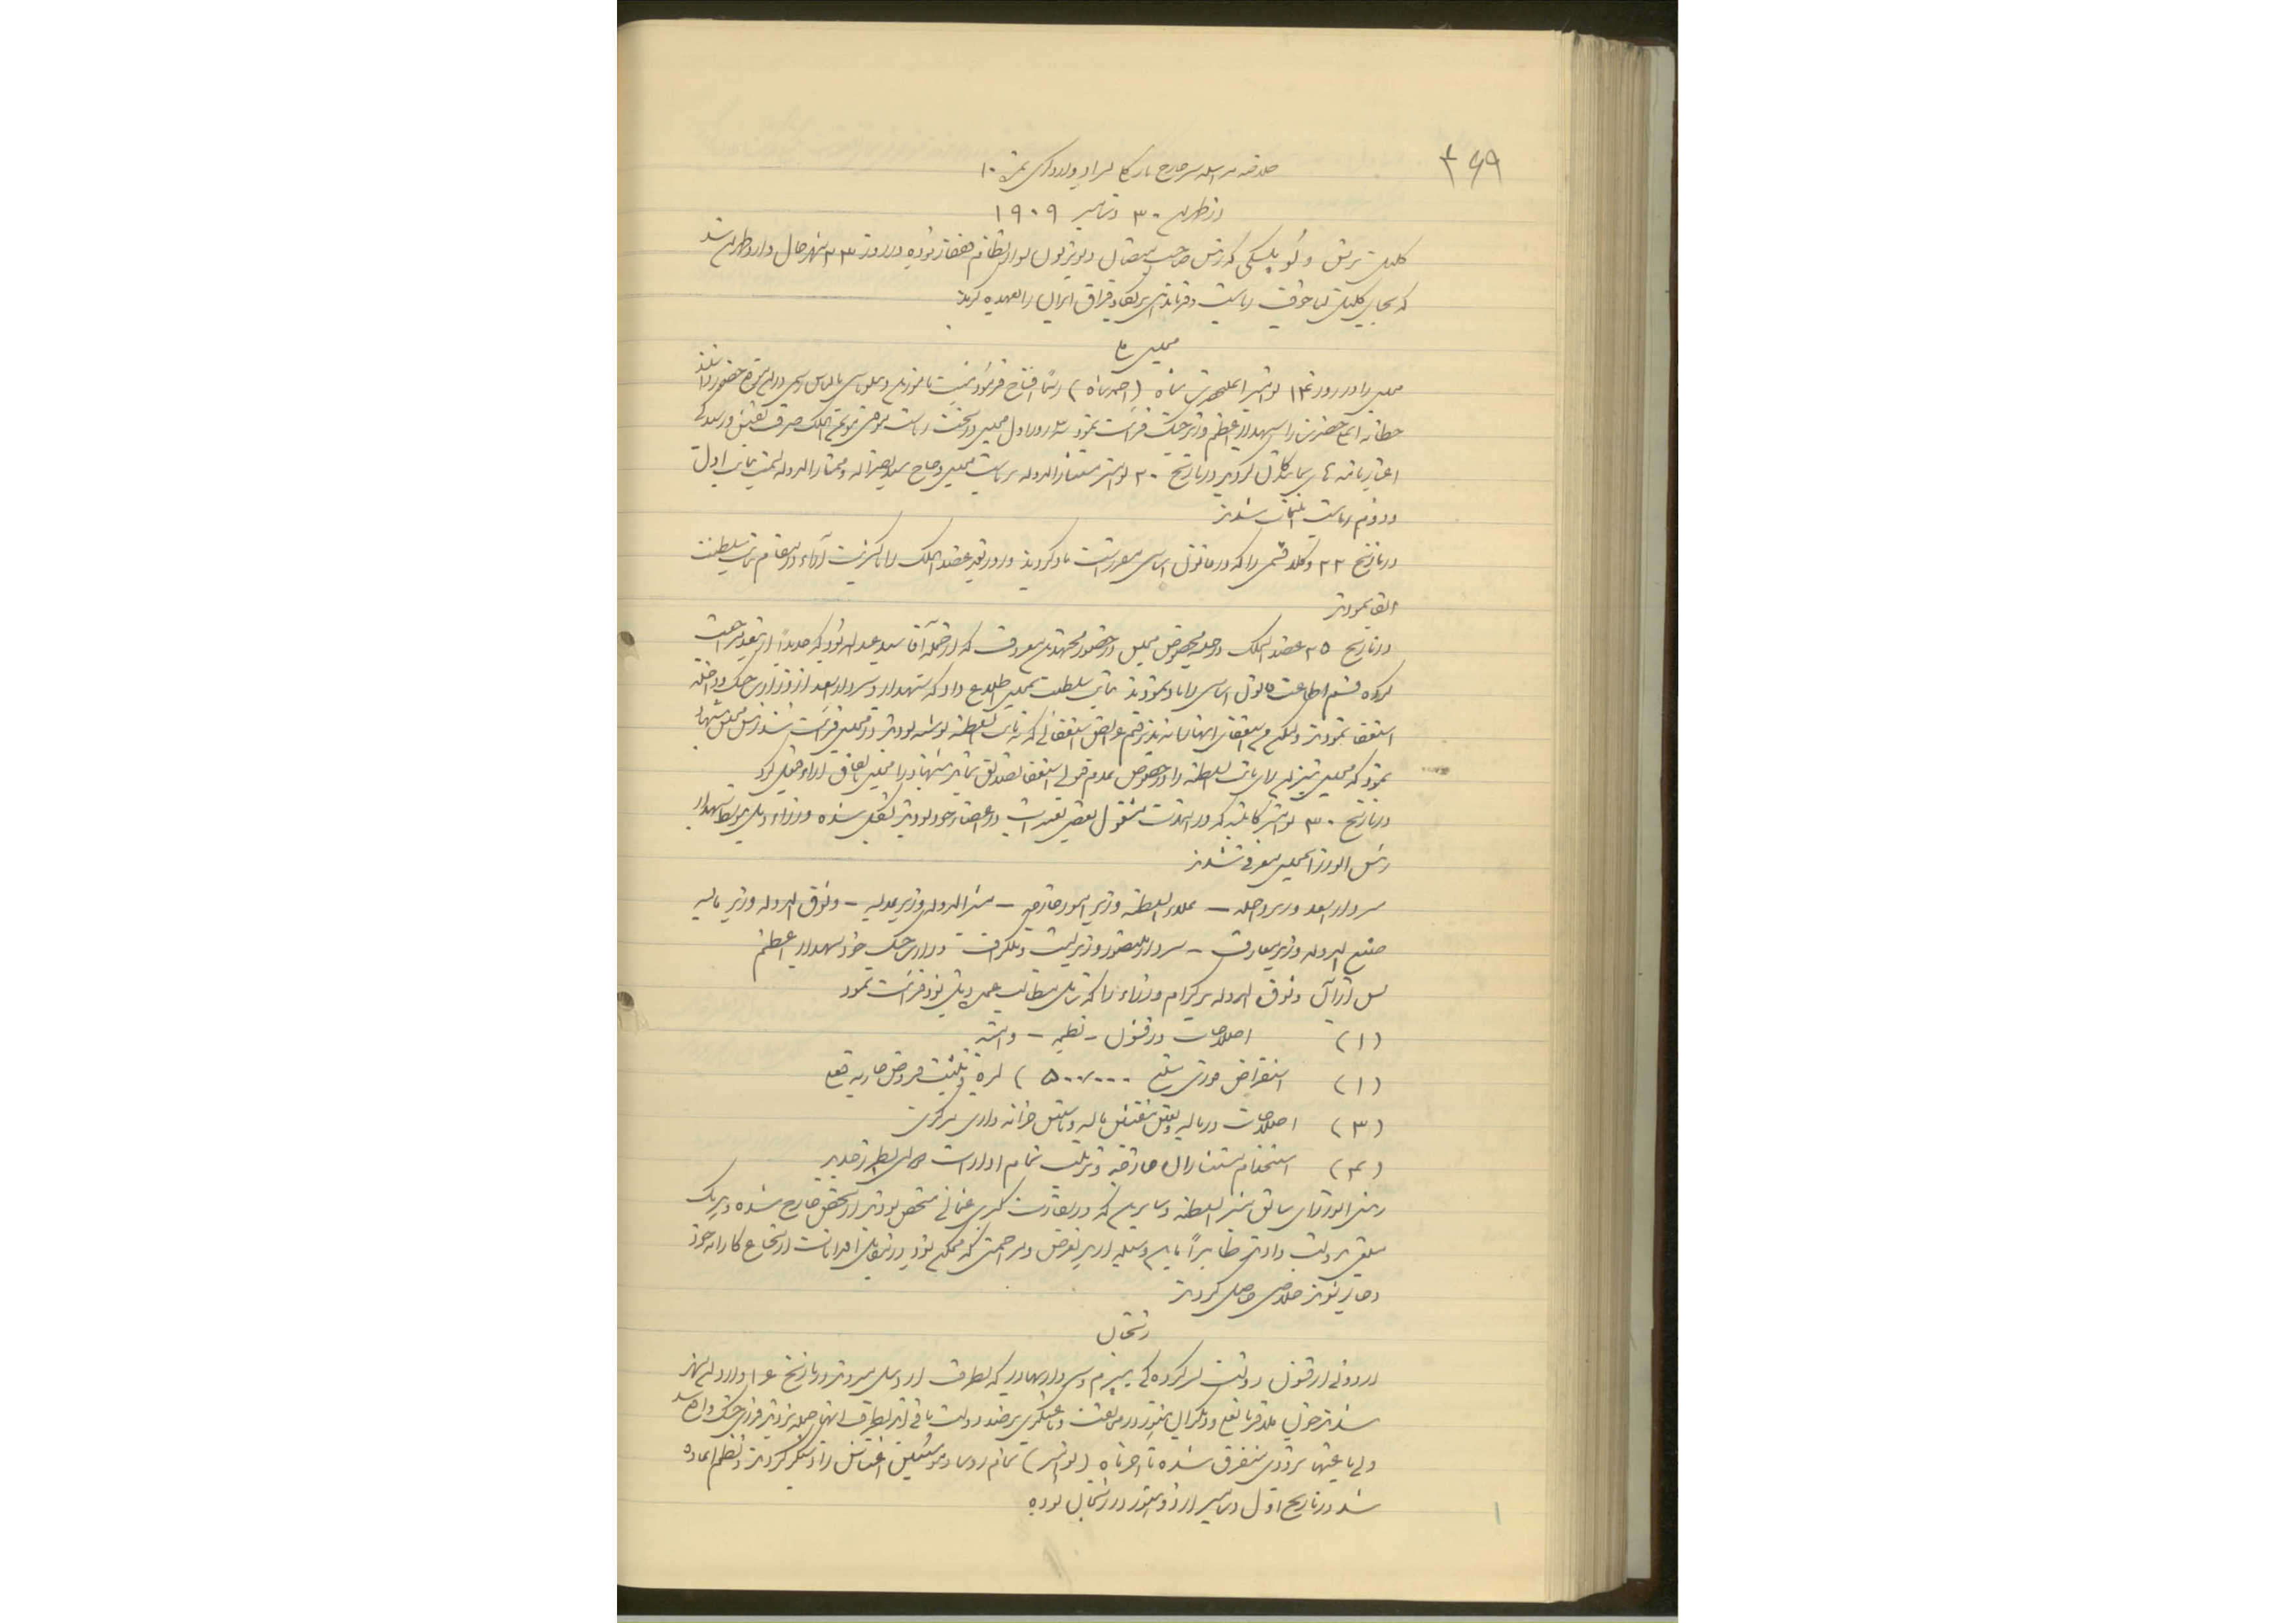 ۳۶۹
خلاصه مراسله سر جارج بارکلی سر ادوارد گری نمره ۱۰
از طهران ۳۰ دسامبر ۱۹۰۹
کلنل پرنس وادبولسکی که رئیس صاحب منصبان بوده در روز ۲۳ شهر حال وارد طهران شد
که بجای کلنل لیاخوف ریاست و فرماندهی بریگاد قزاق ایران را بعهده گیرند
مجلس
مجلس را در روز ۱۴ نوامبر اعلیحضرت شاه (احمد شاه) رسماً افتتاح فرمود حضور داشتند
خطابه اعلیحضرت را سپهدار اعظم وزیر جنگ قرائت نمود
اعتبارنامه های نمایندگان گردید در تاریخ ۲۰ نوامبر مستشار الدوله بریاست مجلس و حاج سید نصرالله و ممتاز الدوله بسمت نیابت اول
و دوم ریاست انتخاب شدند
در تاریخ ۲۲ وکلا قسمی را که در قانون اساسی مقرر است یاد کردند و روز بعد عضد الملک را باکثریت آراء در مقام نیابت سلطنت
ابقا نمودند
در تاریخ ۲۵ عضد الملک در جلسه مخصوص مجلس در حضور مجتهدین معروف که از جمله آقا سید عبدالله بود که جدیداً از تبعید مراجعت
کرده قسم اطاعت قانون اساسی را یاد نمودند نایب سلطنت بمجلس اطلاع داد که سپهدار و سردار اسعد از وزارت جنگ و داخله
استعفا نمودند ولیکن استعفای ایشان را نپذیرفتم عرایض استعفائی که به نایب السلطنه نوشته بودند در مجلس قرائت شد رئیس مجلس پیشنهاد
نمود که مجلس نیز رأی نایب السلطنه را در خصوص عدم قبولی استعفا تصدیق نماید پیشنهاد را مجلس باتفاق آراء قبول کرد
در تاریخ ۳۰ نوامبر کابینه که در اینمدت مشغول بعضی تغییرات در اعضاء خود بودند تشکیل شده وزراء ذیل توسط سپهدار
رئیس الوزرا بمجلس معرفی شدند
سردار اسعد وزیر داخله – علاء السلطنه وزیر امور خارجه – مشیر الدوله وزیر عدلیه – وثوق الدوله وزیر مالیه
صنیع الدوله وزیر معارف – سردار منصور وزیر پست و تلگراف وزارت جنگ خود سپهدار اعظم
پس از آن وثوق الدوله پروگرام وزراء را که شامل مطالب عمده ذیل بود قرائت نمود
(۱) اصلاحات در قشون – نظمیه – و امنیه
(۱) استقراض فوری مبلغ ۵۰۰٬۰۰۰) لیره و تثبیت قروض جاریه
(۳) اصلاحات در مالیه و تعیین مفتش مالیه و تأسیس خزانه داری مرکزی
(۴) استخدام مستشاران خارجه و ترتیب تمام ادارات بطرز جدید
رئیس الوزرای سابق مشیر السلطنه و سایرین که در سفارت کبرای عثمانی متحصن بودند از تحصن خارج شده و هر یک
مبلغی بدولت دادند ظاهراً باین وسیله از هر تعرض و مزاحمتی که ممکن بود در مقابل اقدامات ارتجاع کارانه خود
دچار شوند خلاصی حاصل کردند
زنجان
اردوئی از قشون دولت بسرکردگی یپرم و سردار بهادر که بطرف اردبیل میروند در تاریخ ۱۶ وارد شهر
شدند
ولی یاغیها بزودی متفرق شده تا آخر ماه (نوامبر) تمام رؤسا و مؤسسین اغتشاش را دستگیر کردند و نظم اعاده
شد در تاریخ اول دسامبر اردو هنوز در زنجان بوده